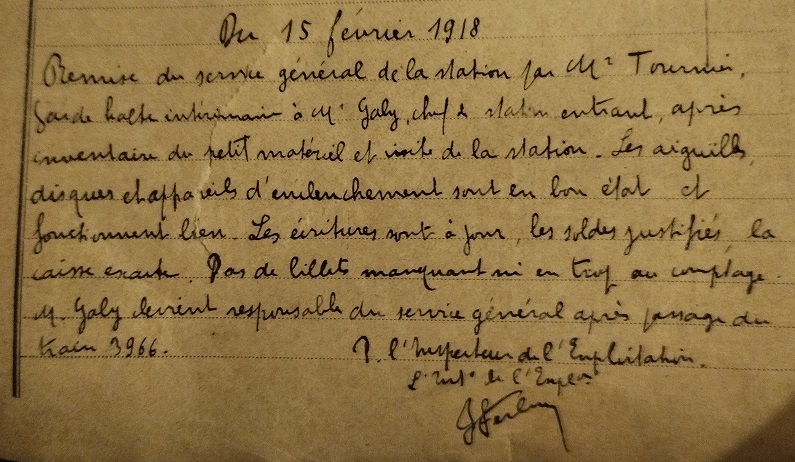 Du 15 février 1918
Remise du service général de la station par Mr Tournier,
Garde halte intérimaire à Mr Galy, chef de station entrant, après
inventaire du petit matériel et visite de la station. Les aiguilles,
disques et appareils d'enclenchement sont en bon état et
fonctionnent bien. Les écritures sont à jour, les soldes justifiés, la
caisse exacte. Pas de billets manquant ni en trop au comptage.
M. Galy devient responsable du service général après passage du
train 3966.
P. l'Inspecteur de l'Exploitation.
de l'Exploon